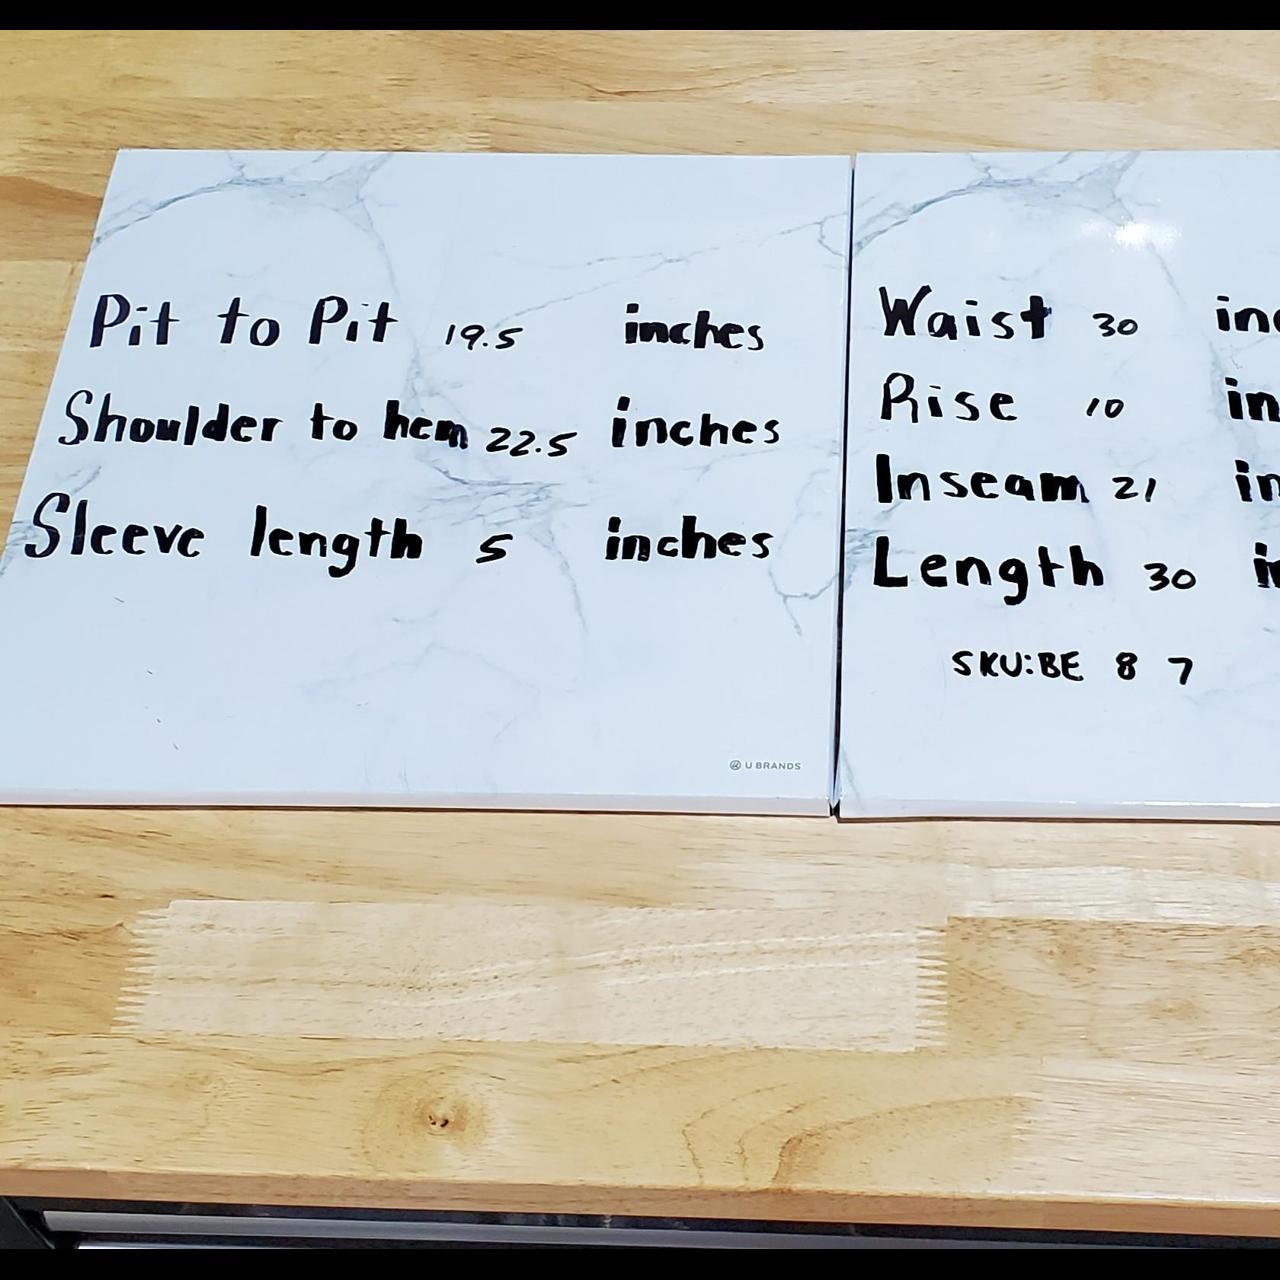 Pit to Pit 19.5 inches
Shoulder to hem 22.5 inches
Sleeve length 5 inches
U BRANDS
Waist 30 inc
Rise 10 in
Inseam 21 in
Length 30 in
SKU:BE 8 7